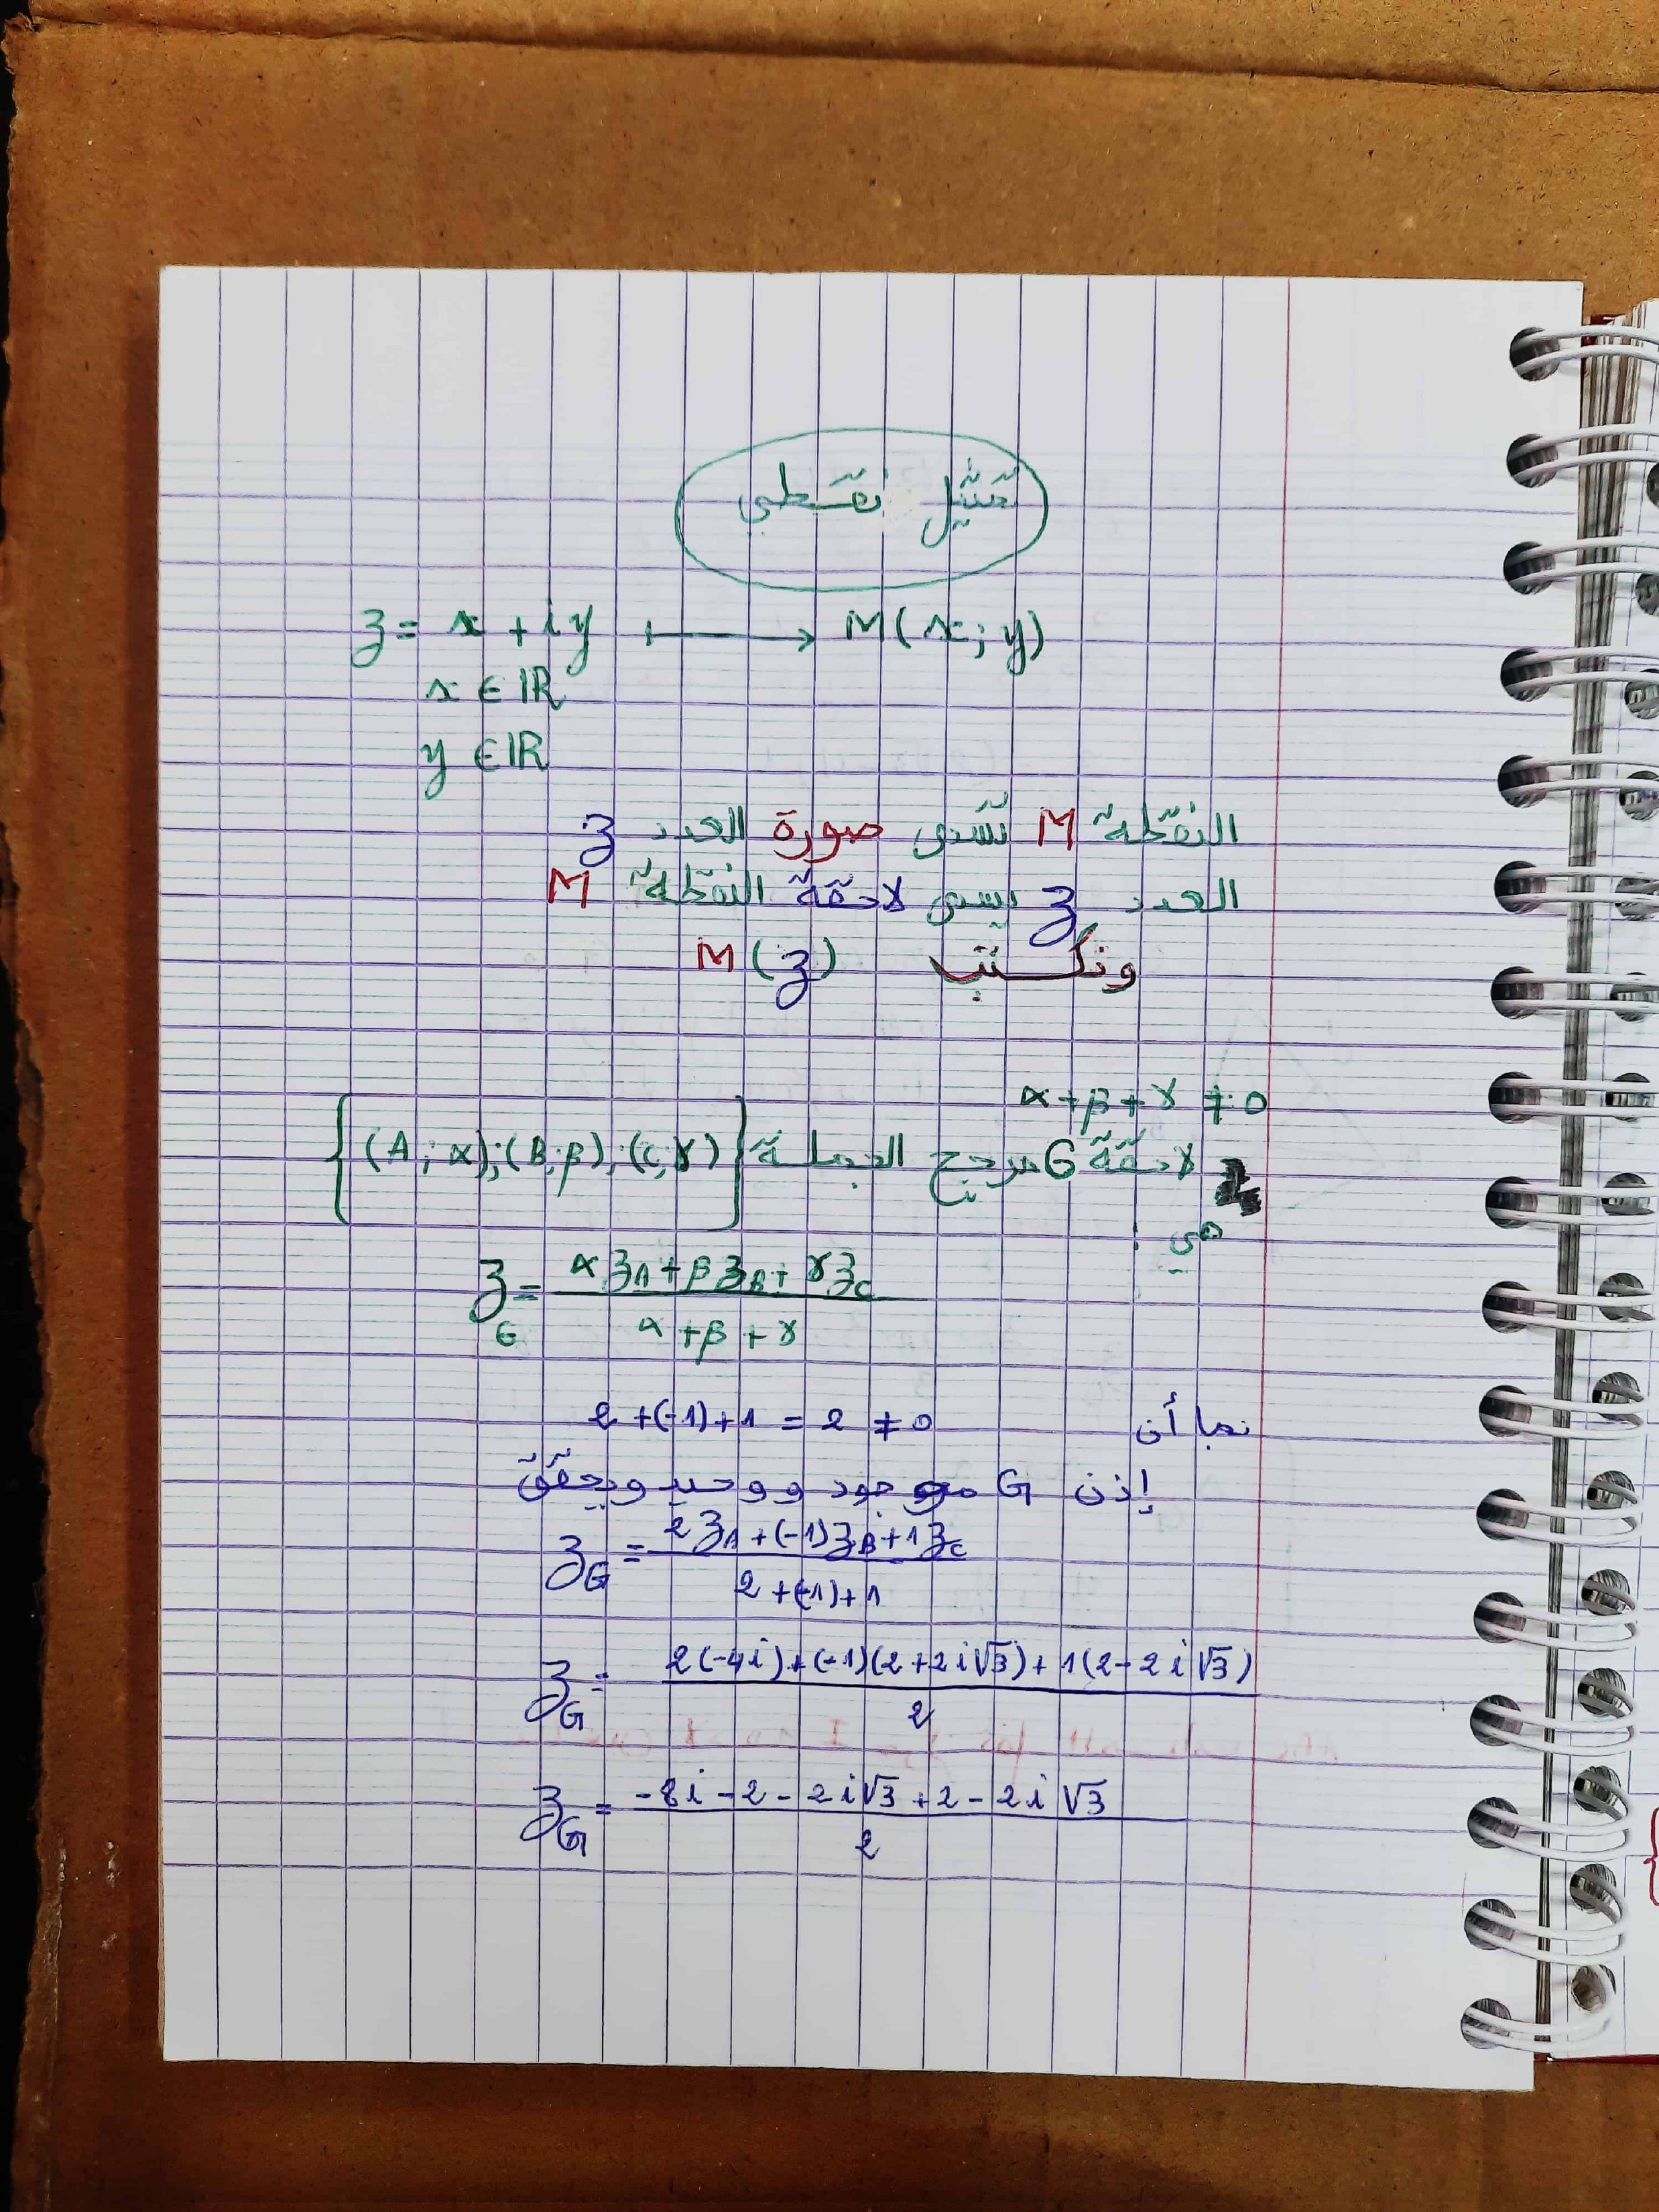 تمثيل نقطي
z = x + iy ⟼ M(x; y)
x ∈ IR
y ∈ IR
النقطة M تسمى صورة العدد z
العدد z يسمى لاحقة النقطة M
ونكتب M(z)
α+β+γ ≠ 0
لاحقة G مرجح الجملة {(A; α);(B;β);(C;γ)}
هي :
z_G = (αz_A + βz_B + γz_C) / (α+β+γ)
بما أن 2+(-1)+1 = 2 ≠ 0
إذن G موجود ووحيد ويحقق
z_G = (2z_A + (-1)z_B + 1z_C) / (2+(-1)+1)
z_G = (2(-4i) + (-1)(2+2i√3) + 1(2-2i√3)) / 2
z_G = (-8i - 2 - 2i√3 + 2 - 2i√3) / 2